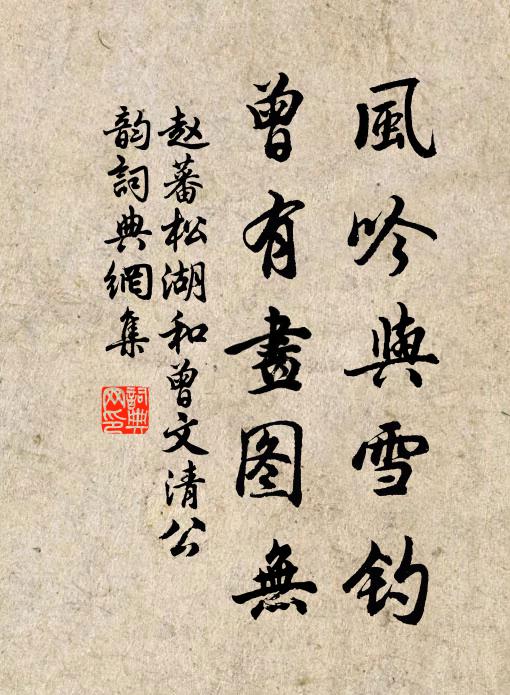 風吟與雪钓
曾有畫图無
赵蕃松湖和曾文清公
韵詞典網集
詞典网印